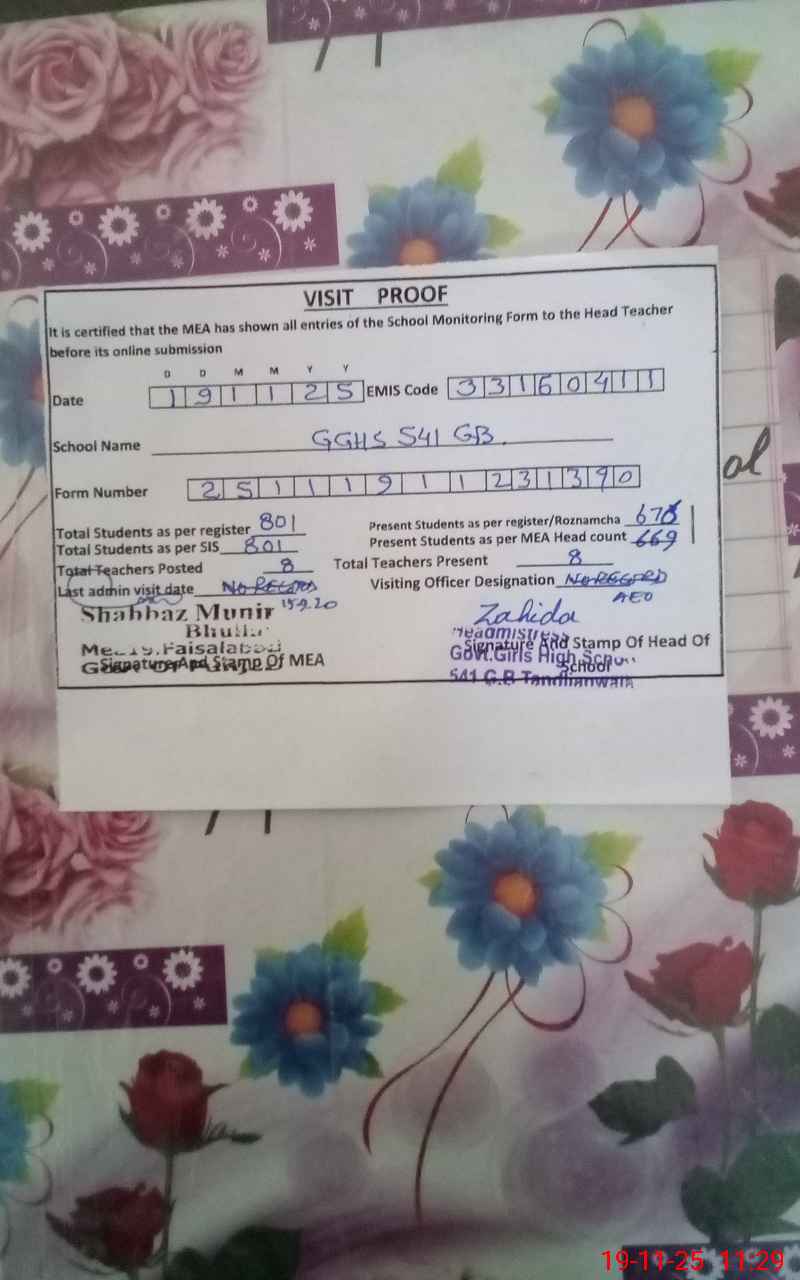 VISIT PROOF
It is certified that the MEA has shown all entries of the School Monitoring Form to the Head Teacher
before its online submission
D D M M Y Y
Date 1 9 1 1 2 5 EMIS Code 3 3 1 6 0 4 1 1
School Name GGHS 541 GB.
Form Number 2 5 1 1 1 9 1 1 2 3 1 3 9 0
Total Students as per register 801 Present Students as per register/Roznamcha
Total Students as per SIS 801 Present Students as per MEA Head count 669
Total Teachers Posted 8 Total Teachers Present 8
Last admin visit date NO RECORD Visiting Officer Designation NO RECORD
15.9.20 AEO
Shahbaz Munir Zahida
Bhulla Headmistress
Faisalabad Signature And Stamp Of Head Of
Signature And Stamp Of MEA Govt.Girls High School
School
541 G.B Tandlianwala
ol
19-11-25 11:29